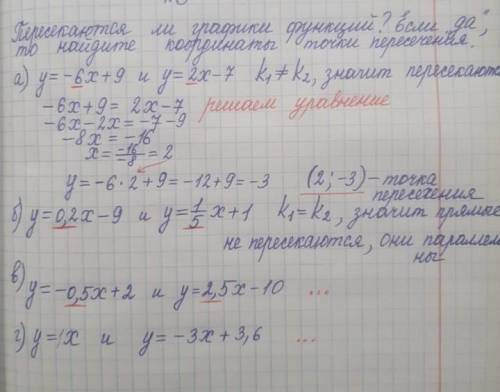 Пересекаются ли графики функций? Если „да",
то найдите координаты точки пересечения.
а) y=-6x+9 и y=2x-7 k₁≠k₂, значит пересекаютс
-6x+9= 2x-7 решаем уравнение
-6x-2x=-7-9
-8x = -16
x= -16/-8 = 2
y=-6·2+9=-12+9=-3 (2;-3)-точка
пересечения
б) y=0,2x-9 и y=1/5 x+1 k₁=k₂, значит прямые
не пересекаются, они параллель
ны
в) y=-0,5x+2 и y=2,5x-10 ...
г) y=x и y=-3x+3,6 ...